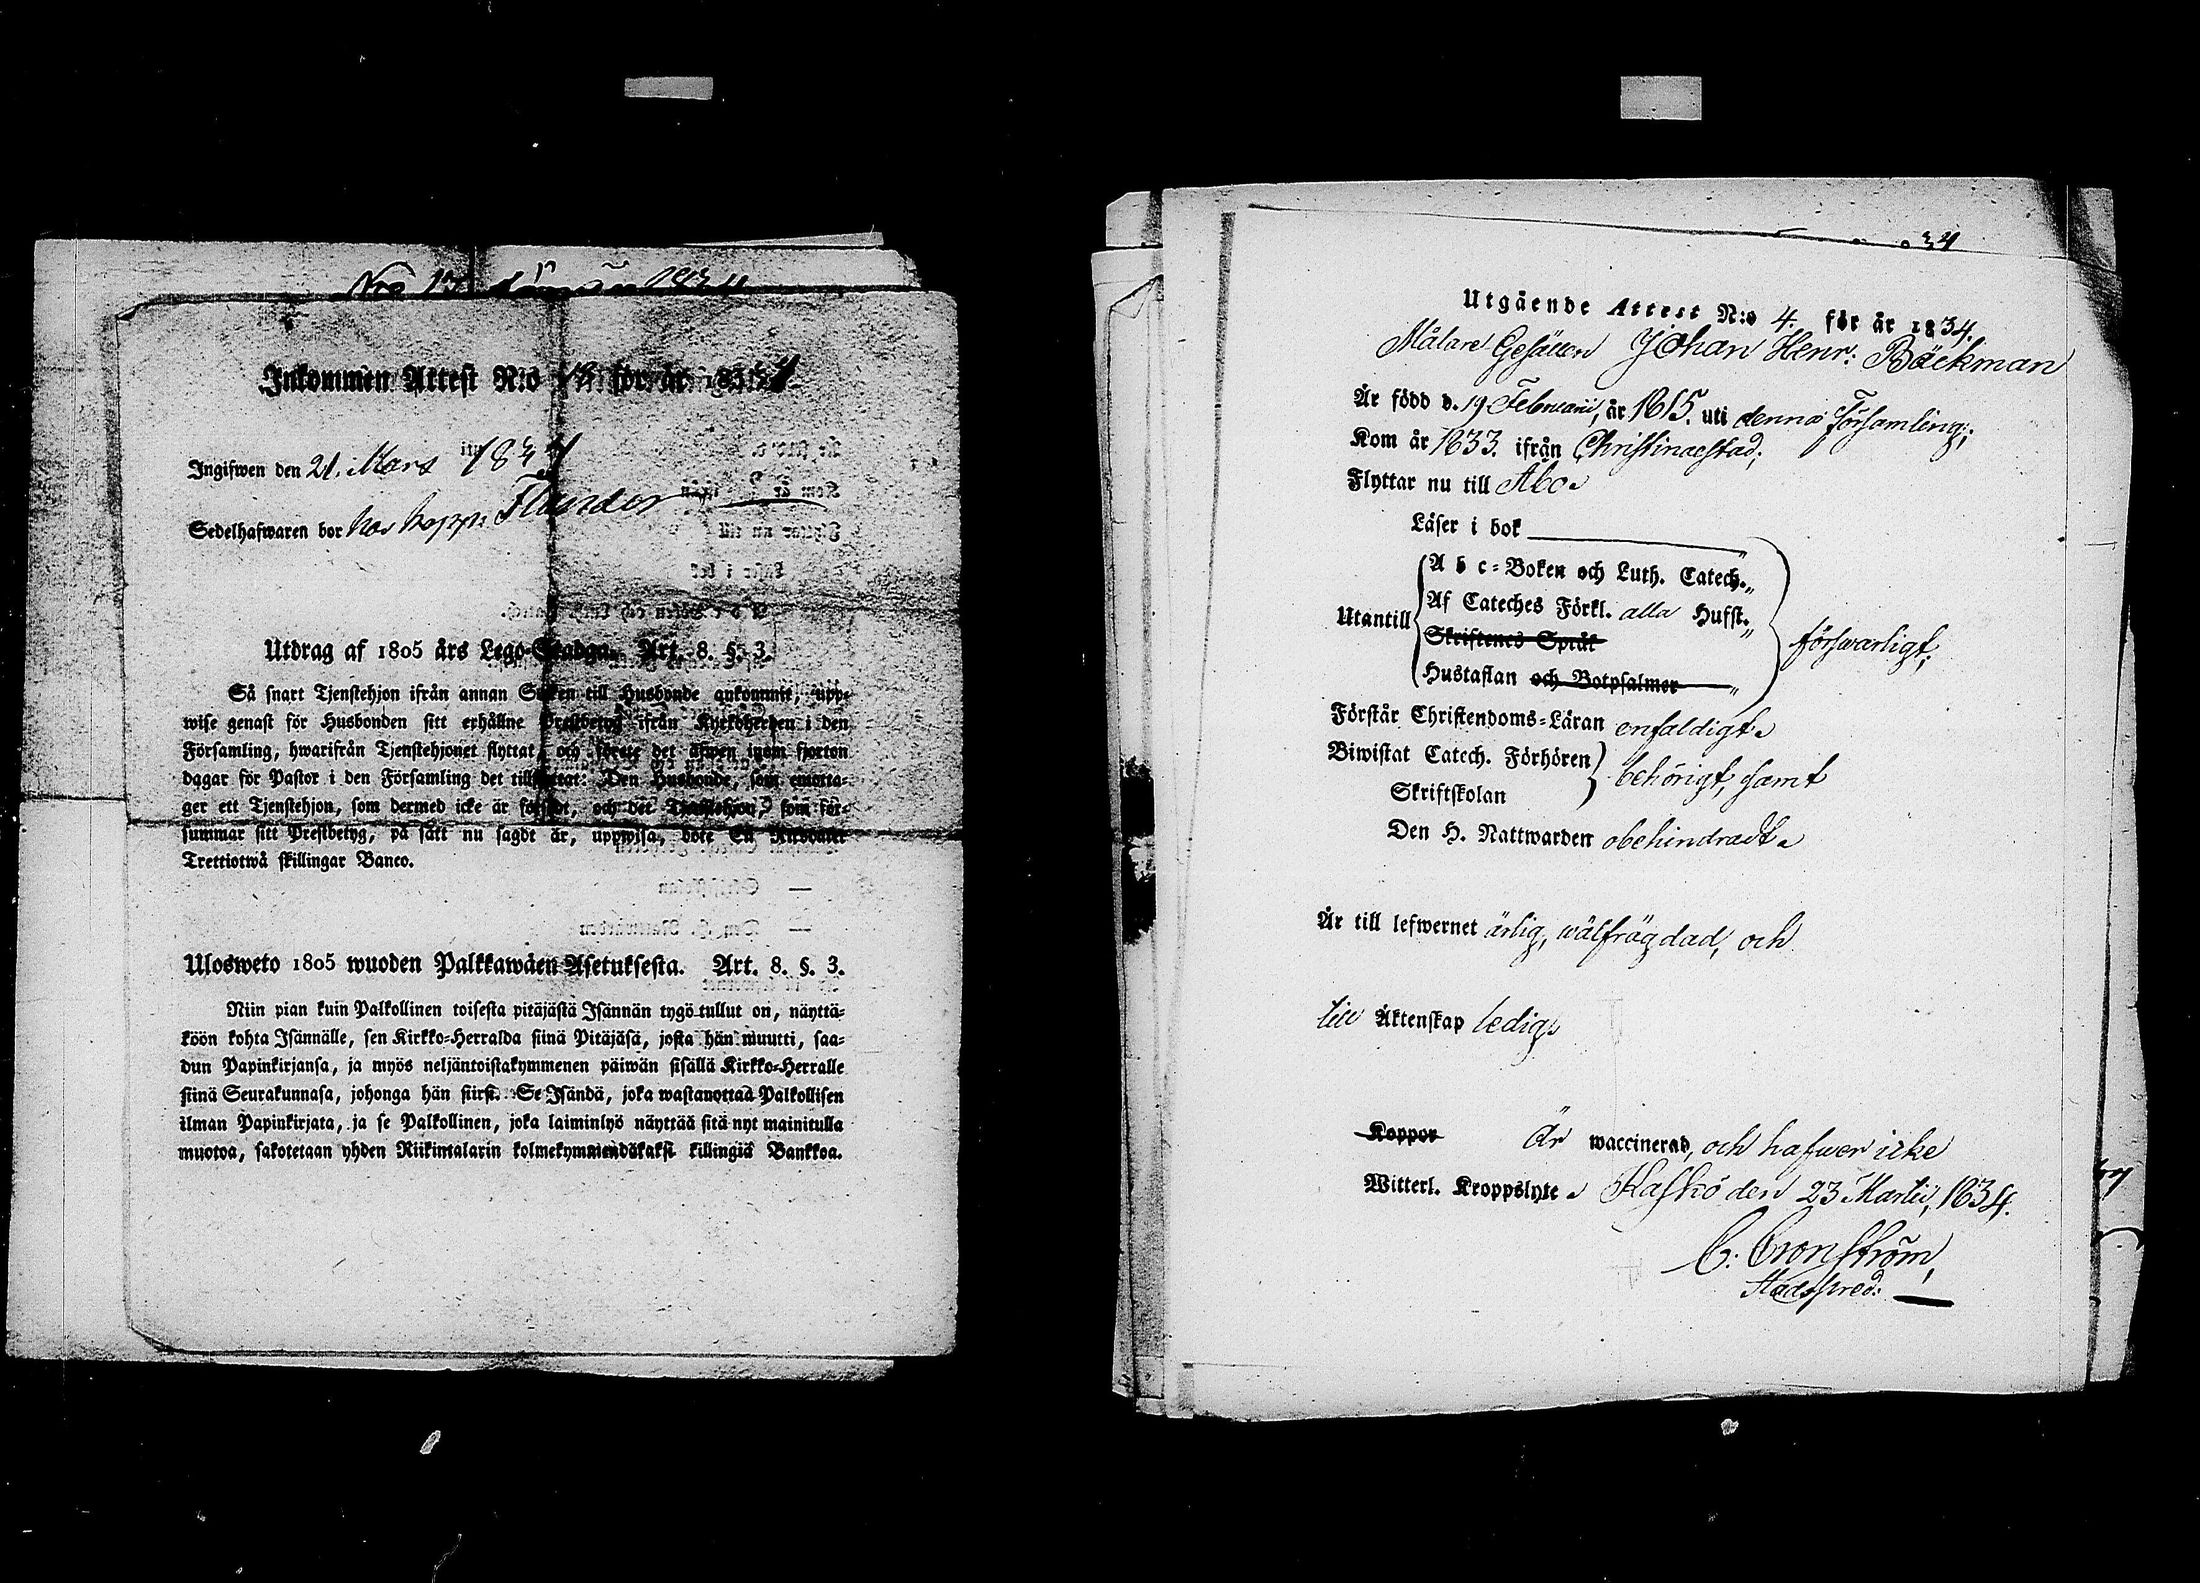 Inkommen Attest N:o för år 1834
Ingifwen den 21. Mars 1834
Sedelhafwaren bor hos kopp: Flander
Utdrag af 1805 års Lego-Stadga. Art. 8. §. 3.
Så snart Tjenstehjon ifrån annan Socken till Husbonde ankommit, upp-
wise genast för Husbonden sitt erhållne Prestbetyg ifrån Kyrkoherden i den
Församling, hwarifrån Tjenstehjonet flyttat, och förete det äfwen inom fjorton
dagar för Pastor i den Församling det tillflyttat: Den Husbonde, som emotta-
ger ett Tjenstehjon, som dermed icke är försedt, och det Tjenstehjon, som för-
summar sitt Prestbetyg, på sätt nu sagdt är, uppwisa, böte En Riksdaler
Trettiotwå skillingar Banco.
Ulosweto 1805 wuoden Palkkawäen Asetuksesta. Art. 8. §. 3.
Niin pian kuin Palkollinen toisesta pitäjästä Isännän tygö tullut on, näyttä-
köön kohta Isännälle, sen Kirkko-Herralda siinä Pitäjäsä, josta hän muutti, saa-
dun Papinkirjansa, ja myös neljäntoistakymmenen päiwän sisällä Kirkko-Herralle
siinä Seurakunnasa, johonga hän siirst. Se Isändä, joka wastanottaa Palkollisen
ilman Papinkirjata, ja se Palkollinen, joka laiminlyö näyttää sitä nyt mainitulla
muotoa, sakotetaan yhden Riikintalarin kolmekymmendäkaksi killingiä Bankkoa.
34
Utgående Attest N:o 4. för år 1834.
Målare Gesällen Johan Henr: Bäckman
Är född d. 19 Februarii, år 1815. uti denna Församling;
Kom år 1833. ifrån Christinaestad;
Flyttar nu till Åbo.
Läser i bok
A b c-Boken och Luth. Catech. „
Utantill Af Cateches Förkl. alla Hufst. „ försvarligt;
Skriftenes Språk
Hustaflan och Botpsalmer „
Förstår Christendoms-Läran enfaldigt.
Biwistat Catech. Förhören
behörigt, samt
Skriftskolan
Den H. Nattwarden obehindradt.
Är till lefwernet ärlig, wälfrägdad, och
till Äktenskap ledig.
Koppor Är waccinerad, och hafwer icke
Witterl. Kroppslyte. Kaskö den 23 Martii, 1834.
C. Cronström,
Stadspred: